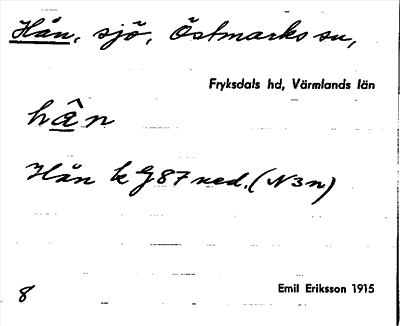 Hån, sjö, Östmarks sn,
Fryksdals hd, Värmlands län
hân
Hån k G87 ned. (N3n)
8
Emil Eriksson 1915